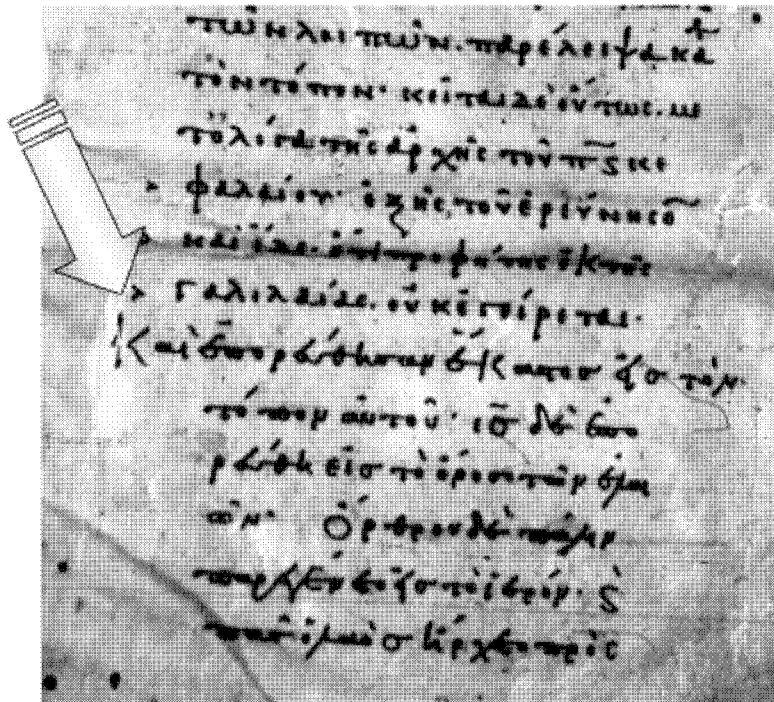 τῶν λοιπῶν. παρέλειψα κα
τὸν τόπον· κεῖται δὲ οὕτως. με
τ ὀλίγα τῆς ἀρχῆς τοῦ π̅ς̅ κε
> φαλαίου· ἑξῆς τοῦ ἐρεύνησο̅
> καὶ ἴδε. ὅτι προφήτης ἐκ τῆς
> Γαλιλαίας. οὐκ ἐγείρεται·
καὶ ἐπορεύθησαν ἕκαστος εἰς τὸν
τόπον αὐτοῦ· ι̅ς̅ δὲ ἐπο
ρεύθη εἰς τὸ ὄρος τῶν ἐλαι
ῶν· Ὄρθρου δὲ πάλιν
παρεγένετο εἰς τὸ ἱερόν· ϛ̀
πᾶς ὁ λαὸς ἤρχετο πρὸς